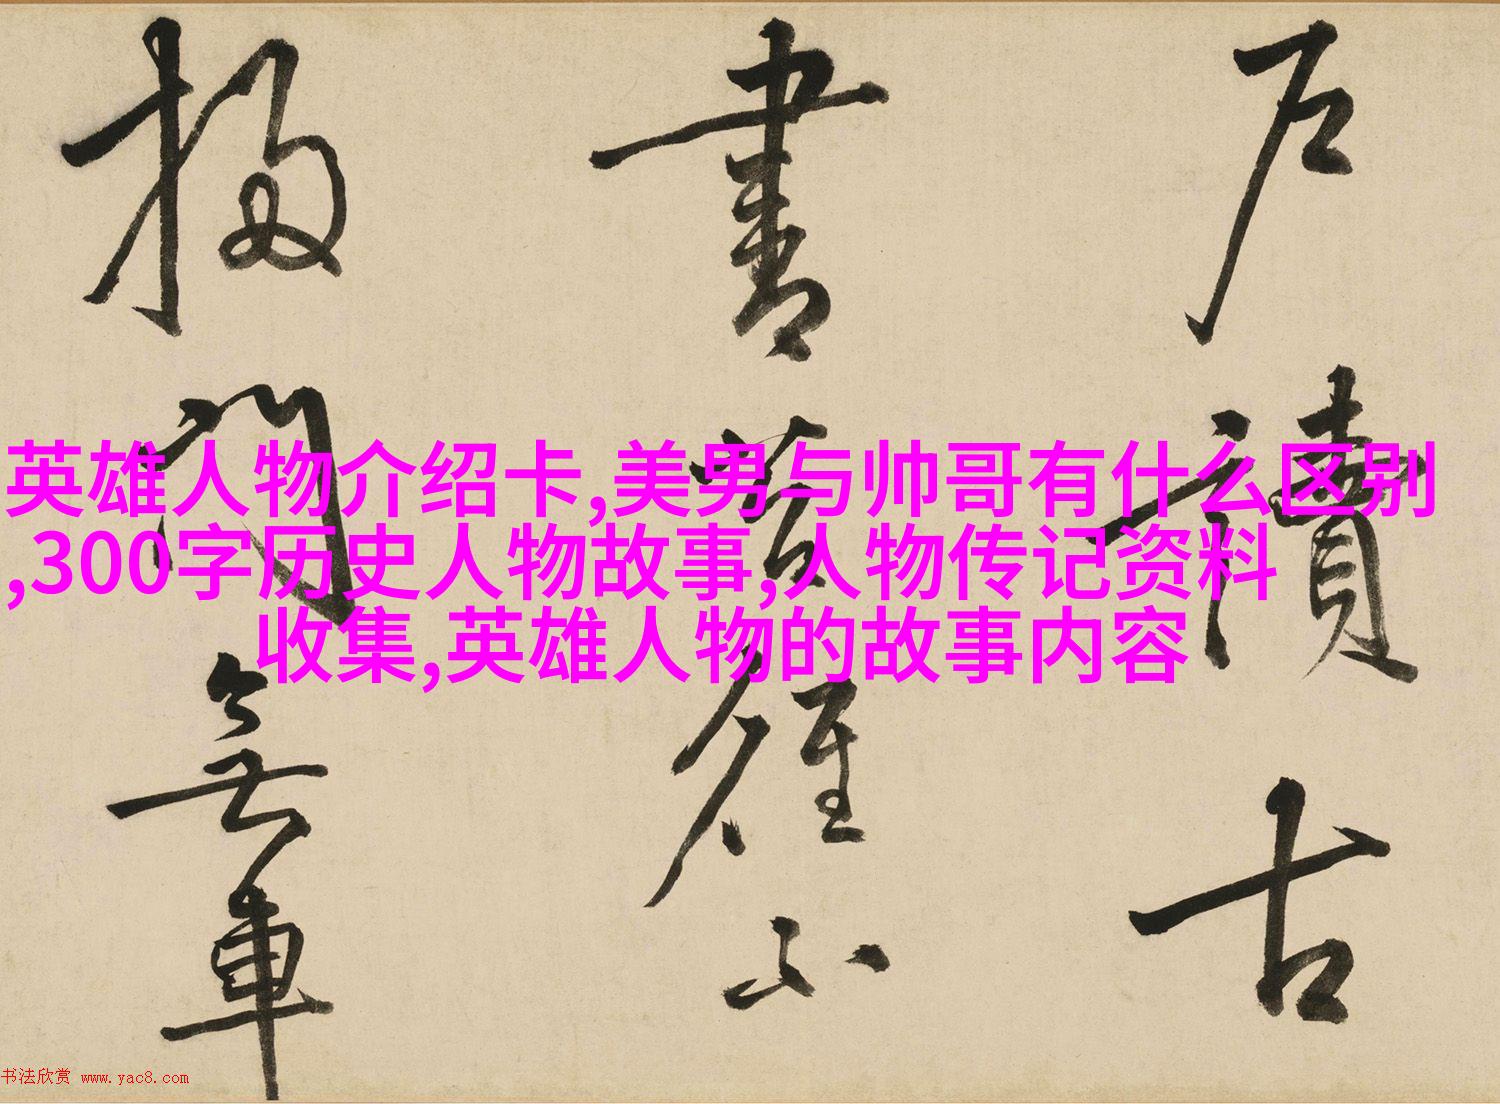 户讀古
書苦雖不
掃門無車
英雄人物介绍卡,美男与帅哥有什么区别
,300字历史人物故事,人物传记资料
收集,英雄人物的故事内容
书法欣赏 www.yac8.com